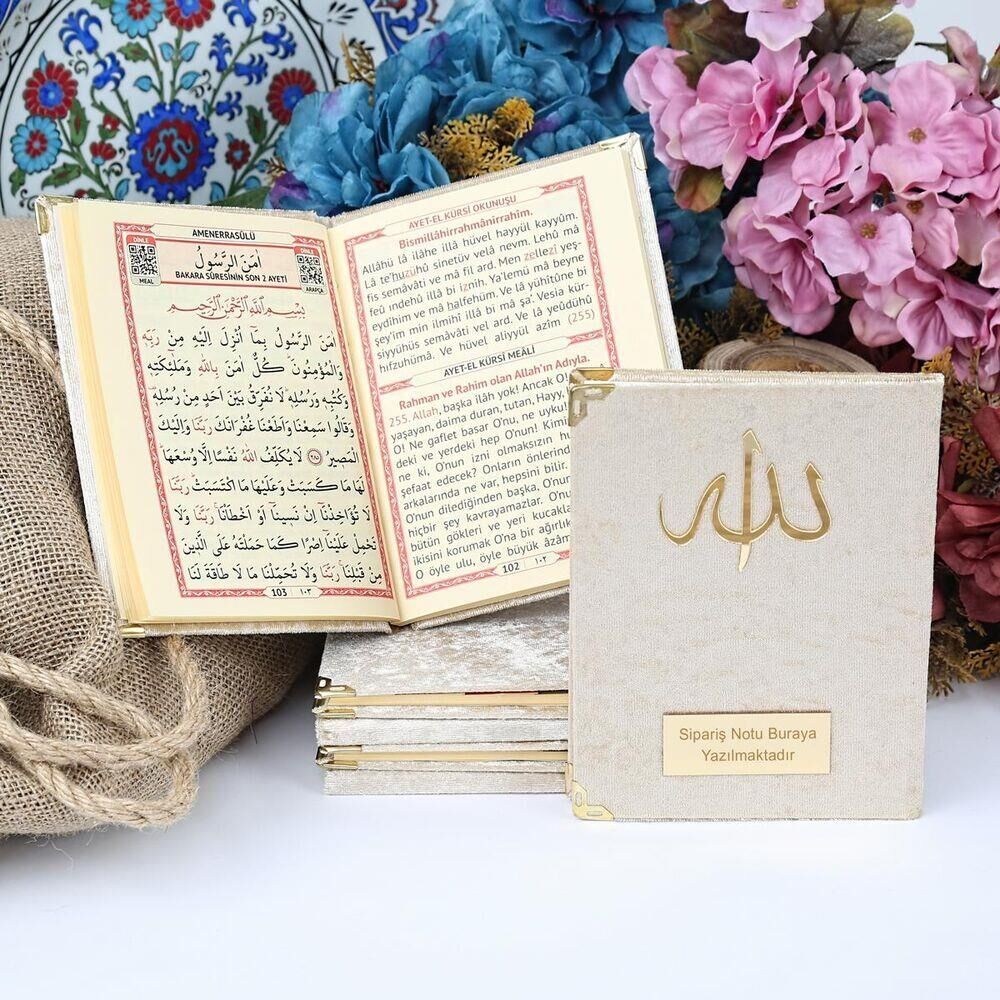 AMENERRASÛLÜ
DİNLE
MEAL
اٰمَنَ الرَّسُولُ
BAKARA SÛRESİNİN SON 2 AYETİ
DİNLE
ARAPÇA
بِسْمِ اللّٰهِ الرَّحْمٰنِ الرَّحِيمِ
اٰمَنَ الرَّسُولُ بِمَٓا اُنْزِلَ اِلَيْهِ مِنْ رَبِّه۪
وَالْمُؤْمِنُونَۜ كُلٌّ اٰمَنَ بِاللّٰهِ وَمَلٰٓئِكَتِه۪
وَكُتُبِه۪ وَرُسُلِه۪ۜ لَا نُفَرِّقُ بَيْنَ اَحَدٍ مِنْ رُسُلِه۪
وَقَالُوا سَمِعْنَا وَاَطَعْنَا غُفْرَانَكَ رَبَّنَا وَاِلَيْكَ
الْمَصِيرُ ﴿٢٨٥﴾ لَا يُكَلِّفُ اللّٰهُ نَفْسًا اِلَّا وُسْعَهَاۜ
لَهَا مَا كَسَبَتْ وَعَلَيْهَا مَا اكْتَسَبَتْۜ رَبَّنَا
لَا تُؤَاخِذْنَٓا اِنْ نَس۪ينَٓا اَوْ اَخْطَأْنَاۚ رَبَّنَا وَلَا
تَحْمِلْ عَلَيْنَٓا اِصْرًا كَمَا حَمَلْتَهُ عَلَى الَّذ۪ينَ
مِنْ قَبْلِنَاۚ رَبَّنَا وَلَا تُحَمِّلْنَا مَا لَا طَاقَةَ لَنَا
103 ١٠٣
AYET-EL KÜRSİ OKUNUŞU
Bismillâhirrahmânirrahim.
Allâhü lâ ilâhe illâ hüvel hayyül kayyûm.
Lâ te'huzühû sinetüv velâ nevm. Lehû mâ
fis semâvâti ve mâ fil ard. Men zellezi yeş-
feû ındehû illâ bi iznih. Ya'lemü mâ beyne
eydîhim ve mâ halfehüm. Ve lâ yühîtûne bi
şey'im min ilmihî illâ bi mâ şa'. Vesia kür-
siyyühüs semâvâti vel ard. Ve lâ yeûdühû
hıfzuhümâ. Ve hüvel aliyyül azîm (255)
AYET-EL KÜRSİ MEÂLİ
Rahman ve Rahim olan Allah'ın Adıyla.
255. Allah, başka ilâh yok! Ancak O
yaşayan, daima duran, tutan, Hayy,
O! Ne gaflet basar O'nu, ne uyku
deki ve yerdeki hep O'nun! Kimin
ne ki, O'nun izni olmaksızın hu
şefaat edecek? Onların önlerind
arkalarında ne var, hepsini bilir.
O'nun dilediğinden başka. O'nun
hiçbir şey kavrayamazlar. O'nun
bütün gökleri ve yeri kucakla
ikisini korumak O'na bir ağırlık
O öyle ulu, öyle büyük âzâm
102 ١٠٢
الله
Sipariş Notu Buraya
Yazılmaktadır